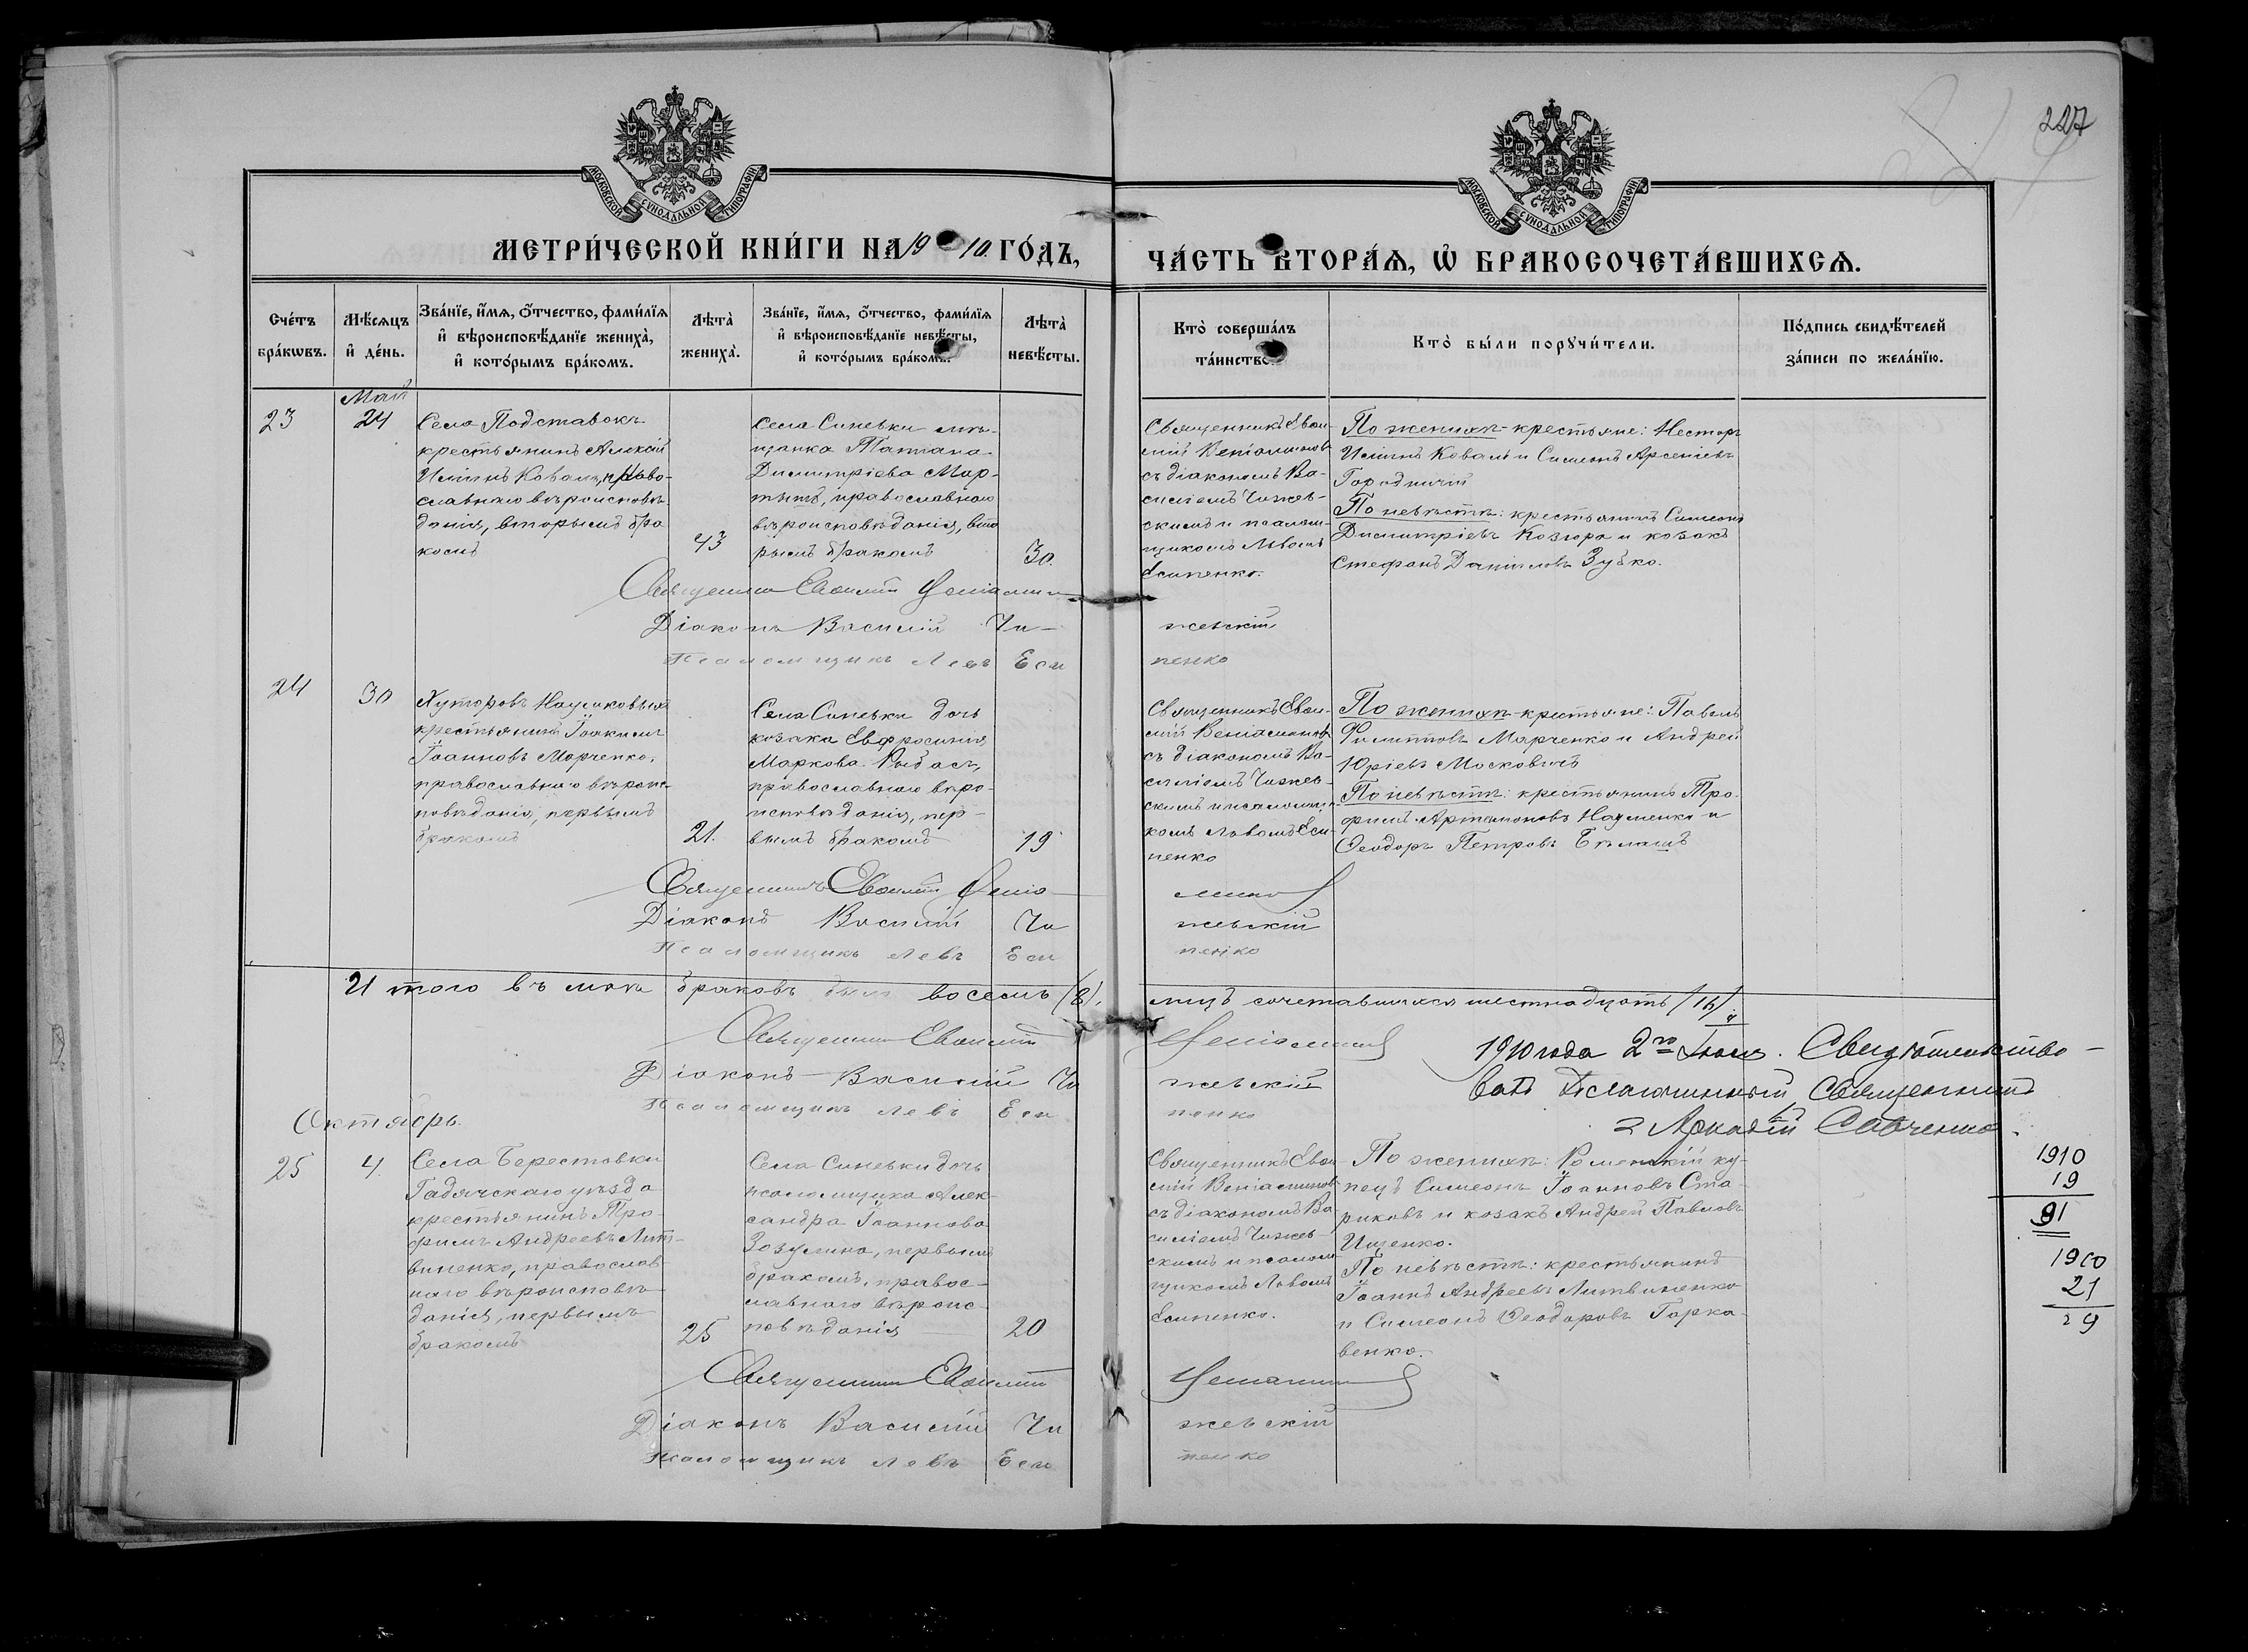 227
МОСКОВСКОЙ СУНОДАЛЬНОЙ ТИПОГРАФІИ
МОСКОВСКОЙ СУНОДАЛЬНОЙ ТИПОГРАФІИ
МЕТРИ́ЧЕСКОЙ КНИ́ГИ НА 1910. ГО́ДЪ,
ЧА́СТЬ ВТОРА́Я, Ѡ БРАКОСОЧЕТА́ВШИХСЯ.
Сче́тъ бра́кѡвъ.
Мѣ́сяцъ и҆ де́нь.
Зва́нїе, и҆́мя, ѻ҆́тчество, фами́лїя
и҆ вѣроисповѣ́данїе жениха̀,
и҆ кото́рымъ бра́комъ.
Лѣта̀ жениха̀.
Зва́нїе, и҆́мя, ѻ҆́тчество, фами́лїя
и҆ вѣроисповѣ́данїе невѣ́сты,
и҆ кото́рымъ бра́комъ.
Лѣта̀ невѣ́сты.
Кто̀ соверша́лъ та́инство.
Кто̀ бы́ли порꙋчи́тели.
По́дпись свидѣ́телей за́писи по жела́нїю.
Май
23
24
Села Подставокъ
крестьянинъ Алексій
Иліинъ Коваль, право-
славнаго вѣроисповѣ-
данія, вторымъ бра
комъ
43
Села Синевки мѣ-
щанка Татіана
Димитріева Мар-
тынъ, православнаго
вѣроисповѣданія, вто
рымъ бракомъ
30.
Священникъ Евѳи-
мій Веніаминовъ
съ діакономъ Ва-
силіемъ Чижев-
скимъ и псалом-
щикомъ Львомъ
Есипенко.
По женихѣ - крестьяне: Несторъ
Иліинъ Коваль и Симеонъ Арсеніевъ
Городничій
По невѣстѣ: крестьянинъ Симеонъ
Димитріевъ Козюра и козакъ
Стефанъ Даніиловъ Зубко.
Священникъ Евѳимій Веніаминовъ
Діаконъ Василій Чижевскій
Псаломщикъ Левъ Есипенко
24
30
Хуторовъ Наумовыхъ
крестьянинъ Іоакимъ
Іоанновъ Марченко,
православнаго вѣроис-
повѣданія, первымъ
бракомъ
21.
Села Синевки дочь
козака Евфросинія
Маркова Рыбась,
православнаго вѣро-
исповѣданія, пер-
вымъ бракомъ
19
Священникъ Евѳи-
мій Веніаминовъ
съ діакономъ Ва-
силіемъ Чижев-
скимъ и псаломщи-
комъ Львомъ Еси-
пенко
По женихѣ - крестьяне: Павелъ
Филипповъ Марченко и Андрей
Юріевъ Московичъ
По невѣстѣ: крестьянинъ Тро-
фимъ Артамоновъ Науменко и
Ѳеодоръ Петровъ Бѣлашъ
Священникъ Евѳимій Веніаминовъ
Діаконъ Василій Чижевскій
Псаломщикъ Левъ Есипенко
Итого въ маѣ браковъ было восемь (8), лицъ сочетавшихся шестнадцать /16/.
Священникъ Евѳимій Веніаминовъ
Діаконъ Василій Чижевскій
Псаломщикъ Левъ Есипенко
1910 года 2го Іюня. Свидѣтельство-
валъ Благочинный Священникъ
Аркадій Савченко.
Октябрь.
25
4.
Села Берестовки
Гадячскаго уѣзда
крестьянинъ Тро-
фимъ Андреевъ Лит-
виненко, православ-
наго вѣроисповѣ-
данія, первымъ
бракомъ
25
Села Синевки дочь
псаломщика Алек-
сандра Іоаннова
Зозулина, первымъ
бракомъ, правос-
лавнаго вѣроис-
повѣданія
20
Священникъ Евѳи-
мій Веніаминовъ
съ діакономъ Ва
силіемъ Чижев-
скимъ и псалом-
щикомъ Львомъ
Есипенко.
По женихѣ: Роменскій ку-
пецъ Симеонъ Іоанновъ Ста-
риковъ и козакъ Андрей Павловъ
Ищенко.
По невѣстѣ: крестьянинъ
Іоаннъ Андреевъ Литвиненко
и Симеонъ Ѳеодоровъ Горка-
венко.
1910
19
91
1910
21
29
Священникъ Евѳимій Веніаминовъ
Діаконъ Василій Чижевскій
Псаломщикъ Левъ Есипенко